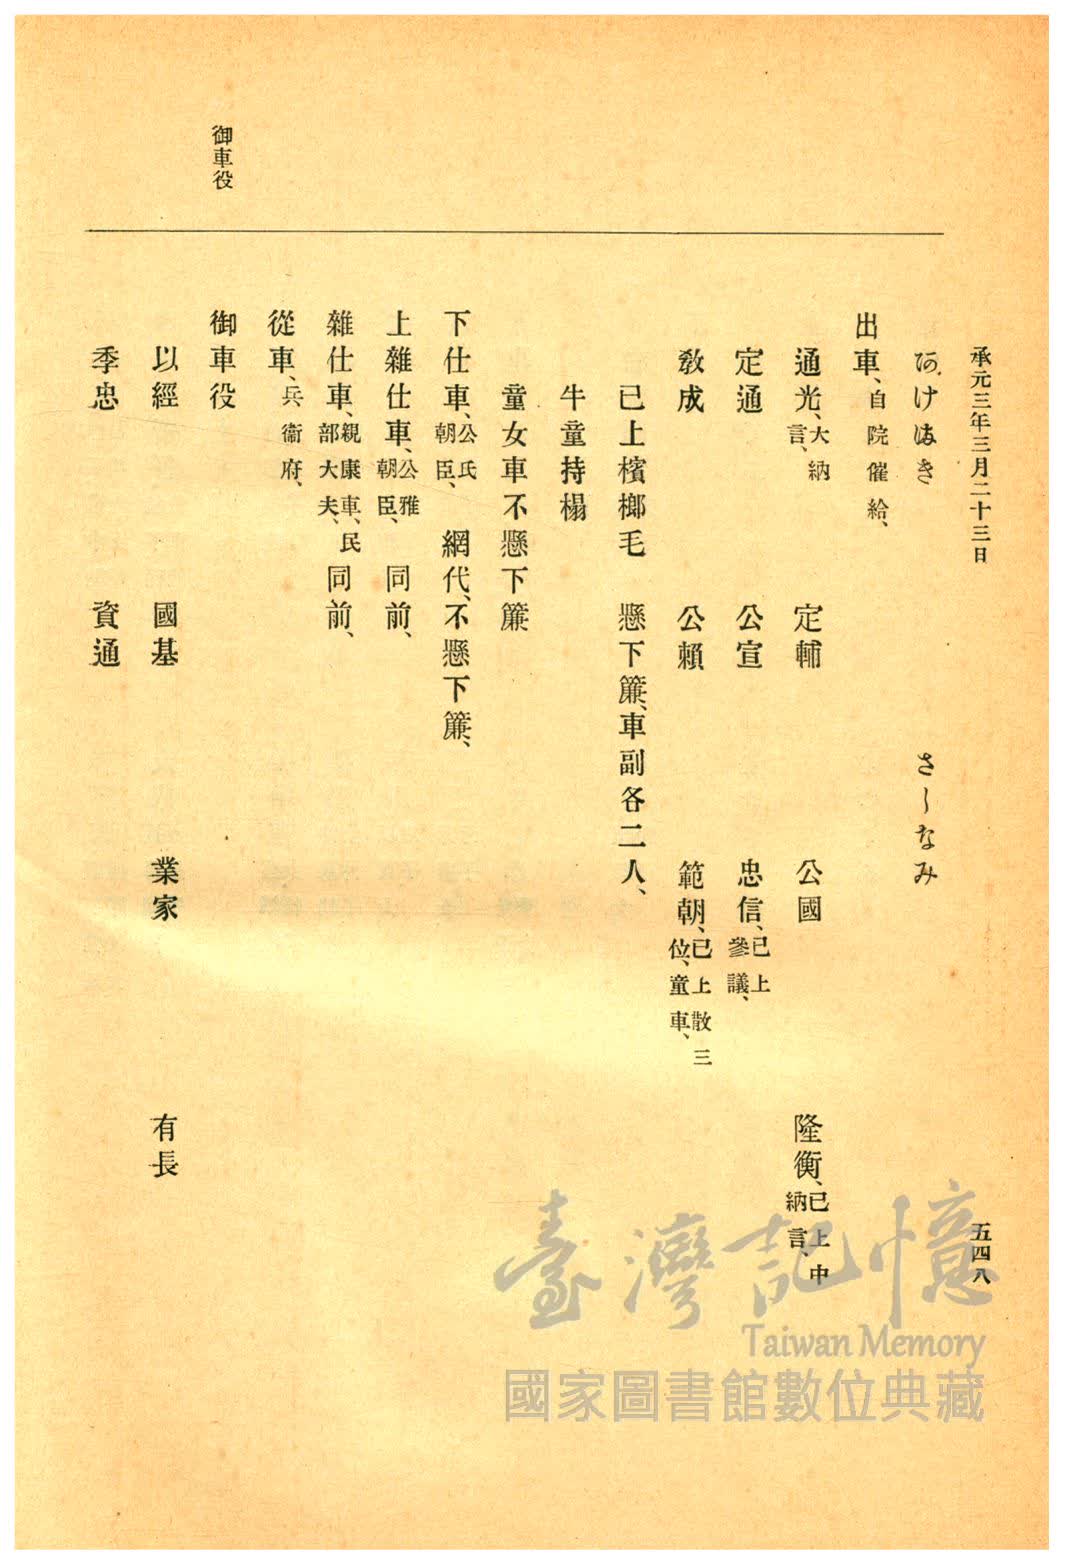 承元三年三月二十三日
五四八
御車役
あけまき　さゝなみ
出車、自院催給、
通光、大納言、　定輔　公國　隆衡、已上中納言、
定通　公宣　忠信、已上參議、
敎成　公賴　範朝、已上散三位、童車、
已上檳榔毛　懸下簾、車副各二人、
牛童持榻
童女車不懸下簾
下仕車、公氏朝臣、　網代、不懸下簾、
上雜仕車、公雅朝臣、　同前、
雜仕車、親康車、民部大夫、　同前、
從車、兵衞府、
御車役
以經　國基　業家　有長
季忠　資通
臺灣記憶
Taiwan Memory
國家圖書館數位典藏